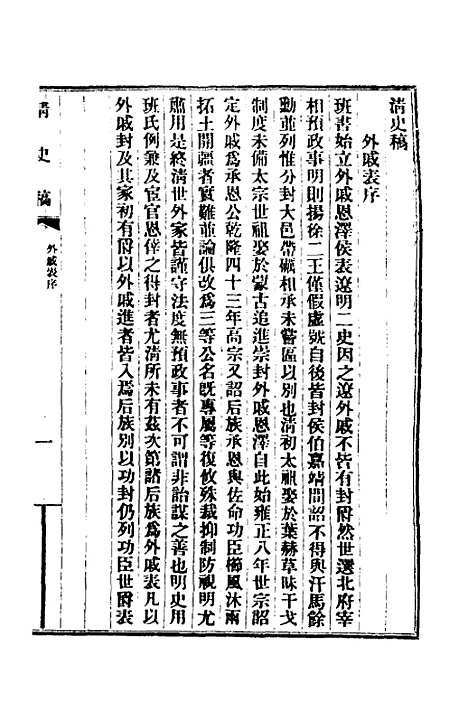 清史稿
外戚表序
班書始立外戚恩澤侯表遼明二史因之遼外戚不皆有封爵然世選北府宰
相預政事明則揚徐二王僅假虛號自後皆封侯伯嘉靖間詔不得與汗馬餘
勳並列惟分封大邑帶礪相承未嘗區以別也淸初太祖娶於葉赫草昧干戈
制度未備太宗世祖娶於蒙古追進崇封外戚恩澤自此始雍正八年世宗詔
定外戚爲承恩公乾隆四十三年高宗又詔后族承恩與佐命功臣櫛風沐雨
拓土開疆者實難並論俱改爲三等公名旣專屬等復攸殊裁抑制防視明尤
肅用是終淸世外家皆謹守法度無預政事者不可謂非詒謀之善也明史用
班氏例兼及宦官恩倖之得封者尤淸所未有茲次第諸后族爲外戚表凡以
外戚封及其家初有爵以外戚進者皆入焉后族別以功封仍列功臣世爵表
清史稿
外戚表序
一